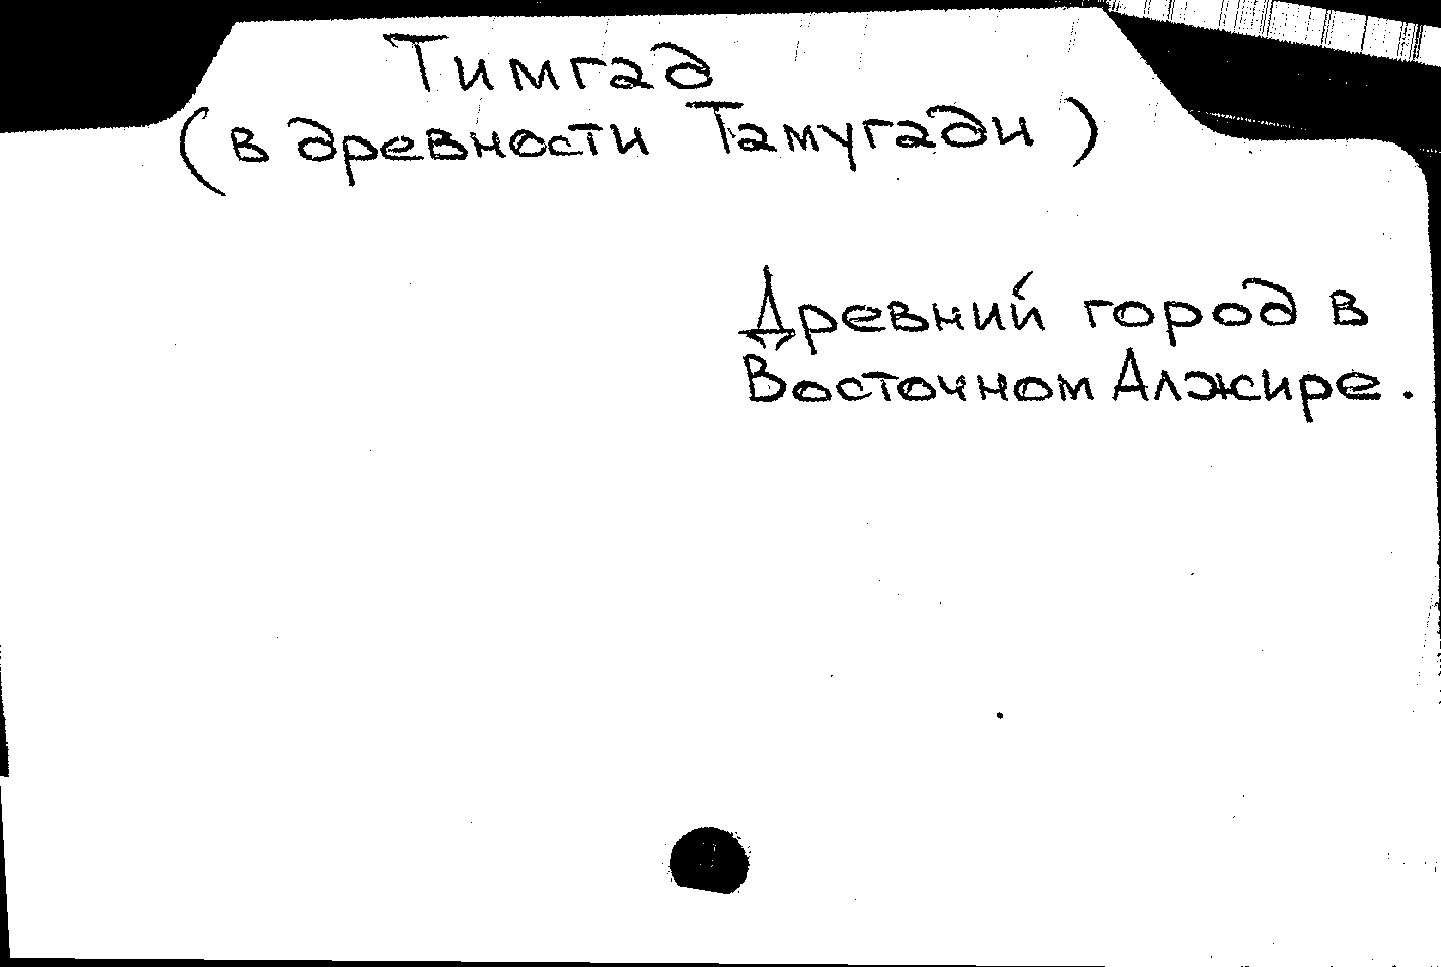 Тимгад
(в древности Тамугади)
Древний город в
Восточном Алжире.